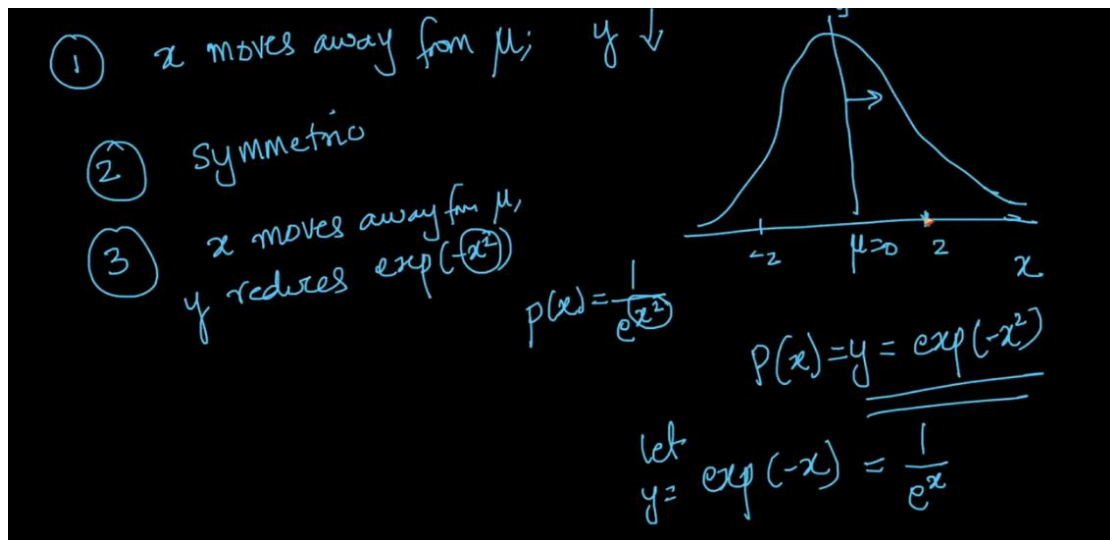 1 x moves away from μ; y ↓
2 symmetric
3 x moves away from μ,
y reduces exp(-x²)
p(x) = 1/e^x²
y
-2 μ=0 2
x
P(x) = y = exp(-x²)
let
y = exp(-x) = 1/e^x